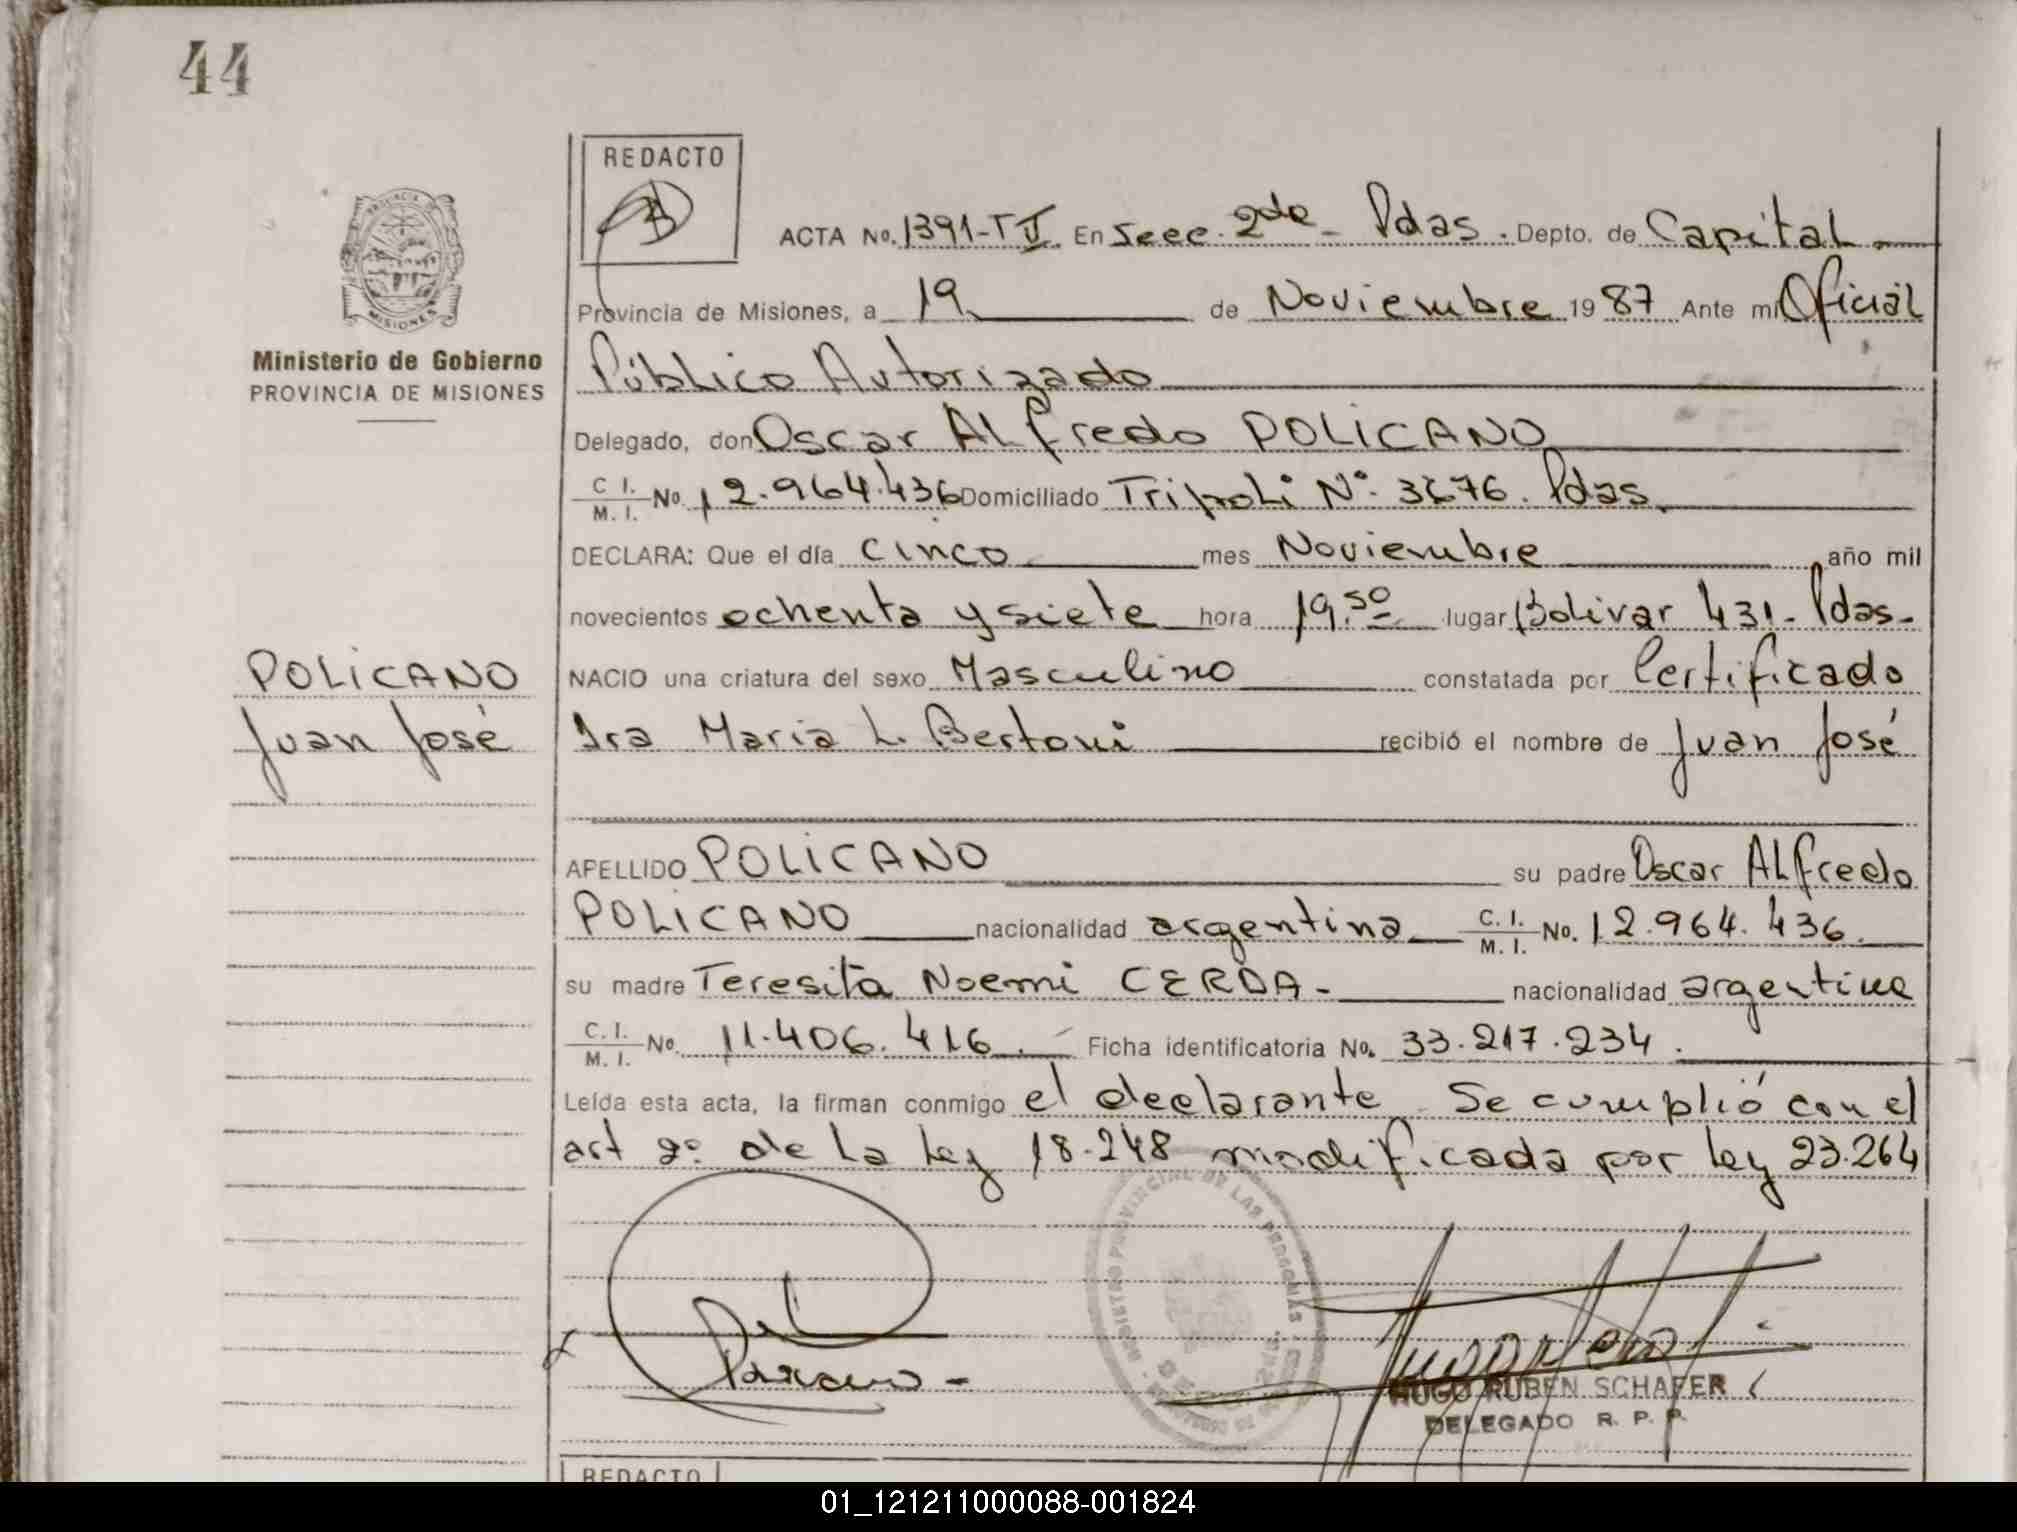 44
REDACTO
ACTA No. 1391-T II En Secc. 2da - Pdas. Depto. de Capital
Provincia de Misiones, a 19 de Noviembre 1987 Ante mi Oficial
Público Autorizado
Ministerio de Gobierno
PROVINCIA DE MISIONES
Delegado, don Oscar ALfredo POLICANO
C I. / M. I. No. 12.964.436 Domiciliado Tripoli Nº. 3676. Pdas.
DECLARA: Que el día cinco mes Noviembre año mil
novecientos ochenta y siete hora 19.50 lugar Bolivar 431 - Pdas.-
POLICANO
Juan José
NACIO una criatura del sexo Masculino constatada por Certificado
Dra Maria L. Bertoni recibió el nombre de Juan José
APELLIDO POLICANO su padre Oscar ALfredo
POLICANO nacionalidad argentina C. I. / M. I. No. 12.964.436.
su madre Teresita Noemi CERDA.- nacionalidad argentina
C. I. / M. I. No. 11.406.416. Ficha identificatoria No. 33.217.234.
Leída esta acta, la firman conmigo el declarante. Se cumplió con el
art 2º de la Ley 18.248 modificada por Ley 23.264
REGISTRO PROVINCIAL DE LAS PERSONAS
HUGO RUBEN SCHAFER
DELEGADO R. P. P.
REDACTO
01_121211000088-001824